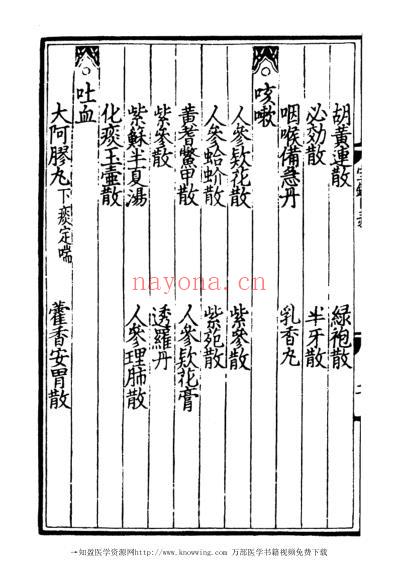 胡黃連散　綠袍散
必効散　半牙散
咽喉備急丹　乳香丸
咳嗽
人參欵花散　紫參散
人參蛤蚧散　紫苑散
黃耆鱉甲散　人參欵花膏
紫參散　透羅丹
紫蘇半夏湯　人參理肺散
化痰玉壺散
吐血
大阿膠丸 下痰定喘　藿香安胃散
nayona.cn
→知盈医学资源网http://www.knowwing.com 万部医学书籍视频免费下载